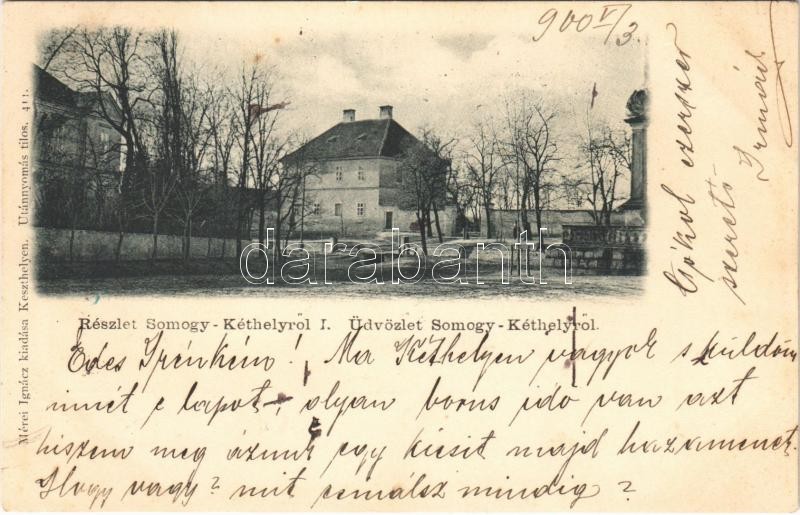 900 V/3.
Csókol ezerszer
szerető
Irmád
Mérei Ignácz kiadása Keszthelyen. Utánnyomás tilos. 411.
darabanth
Részlet Somogy-Kéthelyről I. Üdvözlet Somogy-Kéthelyről.
Édes Irénkém! Ma Kéthelyen vagyok s küldöm
innét e lapot, olyan borus idő van azt
hiszem meg ázunk egy kicsit majd hazamenet.
Hogy vagy? mit csinálsz mindig?